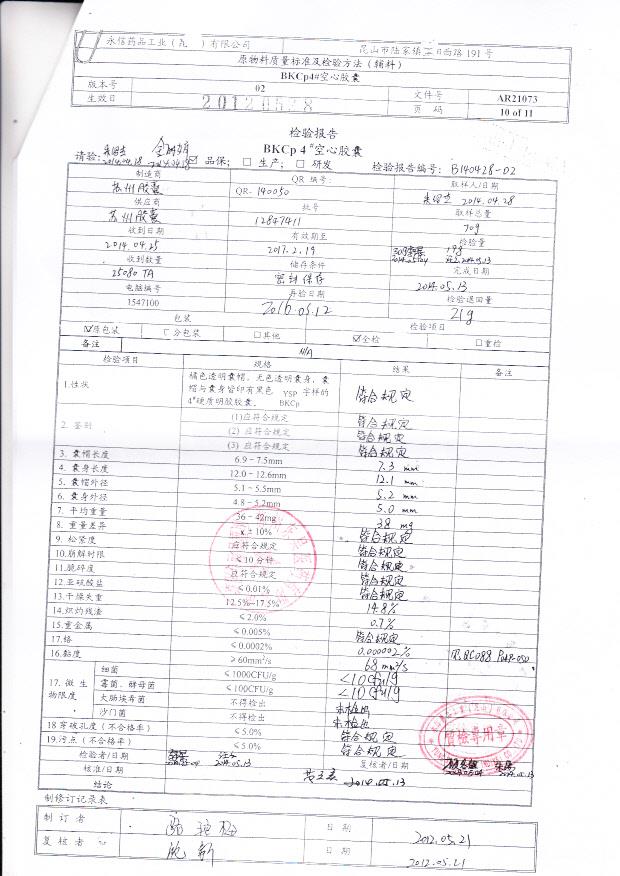 永信药品工业（ ）有限公司 昆山市陆家镇 西路191号
原物料质量标准及检验方法（辅料）
BKCp4#空心胶囊
版本号 02 文件号 AR21073
生效日 20120528 页 码 10 of 11
检验报告
BKCp 4#空心胶囊
请验: 2014.04.28 2014.04.28 ☑ 品保; □ 生产; □ 研发 检验报告编号: B140428-02
制造商 QR 编号: 取样人/日期
苏州胶囊 QR-140050 2014.04.28
供应商 批号 取样总量
苏州胶囊 12847411 70g
收到日期 有效期至 检验量
2014.04.25 2017.2.19
收到数量 储存条件 完成日期
25080 TA 密封保存 2014.05.13
电脑编号 再验日期 检验退回量
1547100 2016.05.12 21g
包装 检验项目
☑原包装 □分包装 □其他 ☑全检 □重检
备注 N/A
检验项目 规格 结果 备注
1.性状 橘色透明囊帽，无色透明囊身，囊帽与囊身皆印有黑色 YSP BKCp 字样的4#硬质明胶胶囊。 符合规定
2. 鉴别 (1)应符合规定 符合规定
(2) 应符合规定 符合规定
(3) 应符合规定 符合规定
3. 囊帽长度 6.9－7.5mm 7.3 mm
4. 囊身长度 12.0－12.6mm 12.1 mm
5. 囊帽外径 5.1－5.5mm 5.2 mm
6. 囊身外径 4.8－5.2mm 5.0 mm
7. 平均重量 36－42mg 38 mg
8. 重量差异 x±10% 符合规定
9. 松紧度 应符合规定 符合规定
10.崩解时限 ≤10分钟 符合规定
11.脆碎度 应符合规定 符合规定
12.亚硫酸盐 ≤0.01% 符合规定
13.干燥失重 12.5%~17.5% 14.8%
14.炽灼残渣 ≤2.0% 0.7%
15.重金属 ≤0.005% 符合规定
17.铬 ≤0.0002% 0.00002% 见QC088
16.黏度 ≥60mm²/s 68 mm²/s
17. 微生物限度 细菌 ≤1000CFU/g <10cfu/g
霉菌、酵母菌 ≤100CFU/g <10cfu/g
大肠埃希菌 不得检出 未检出
沙门菌 不得检出 未检出
18 穿破孔度（不合格率） ≤5.0% 符合规定
19.污点（不合格率） ≤5.0% 符合规定
检验者/日期 2014.05.13 复核者/日期 2014.05.13
核准/日期 2014.05.13
结论
质检专用章
制修订记录表
制 订 者 日 期 2012.05.21
复 核 者 日 期 2012.05.21